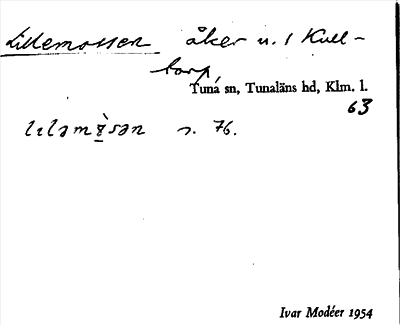 Lillemossen åker u. 1 Kull-
torp,
Tuna sn, Tunaläns hd, Klm. l.
63
s. 76.
Ivar Modéer 1954